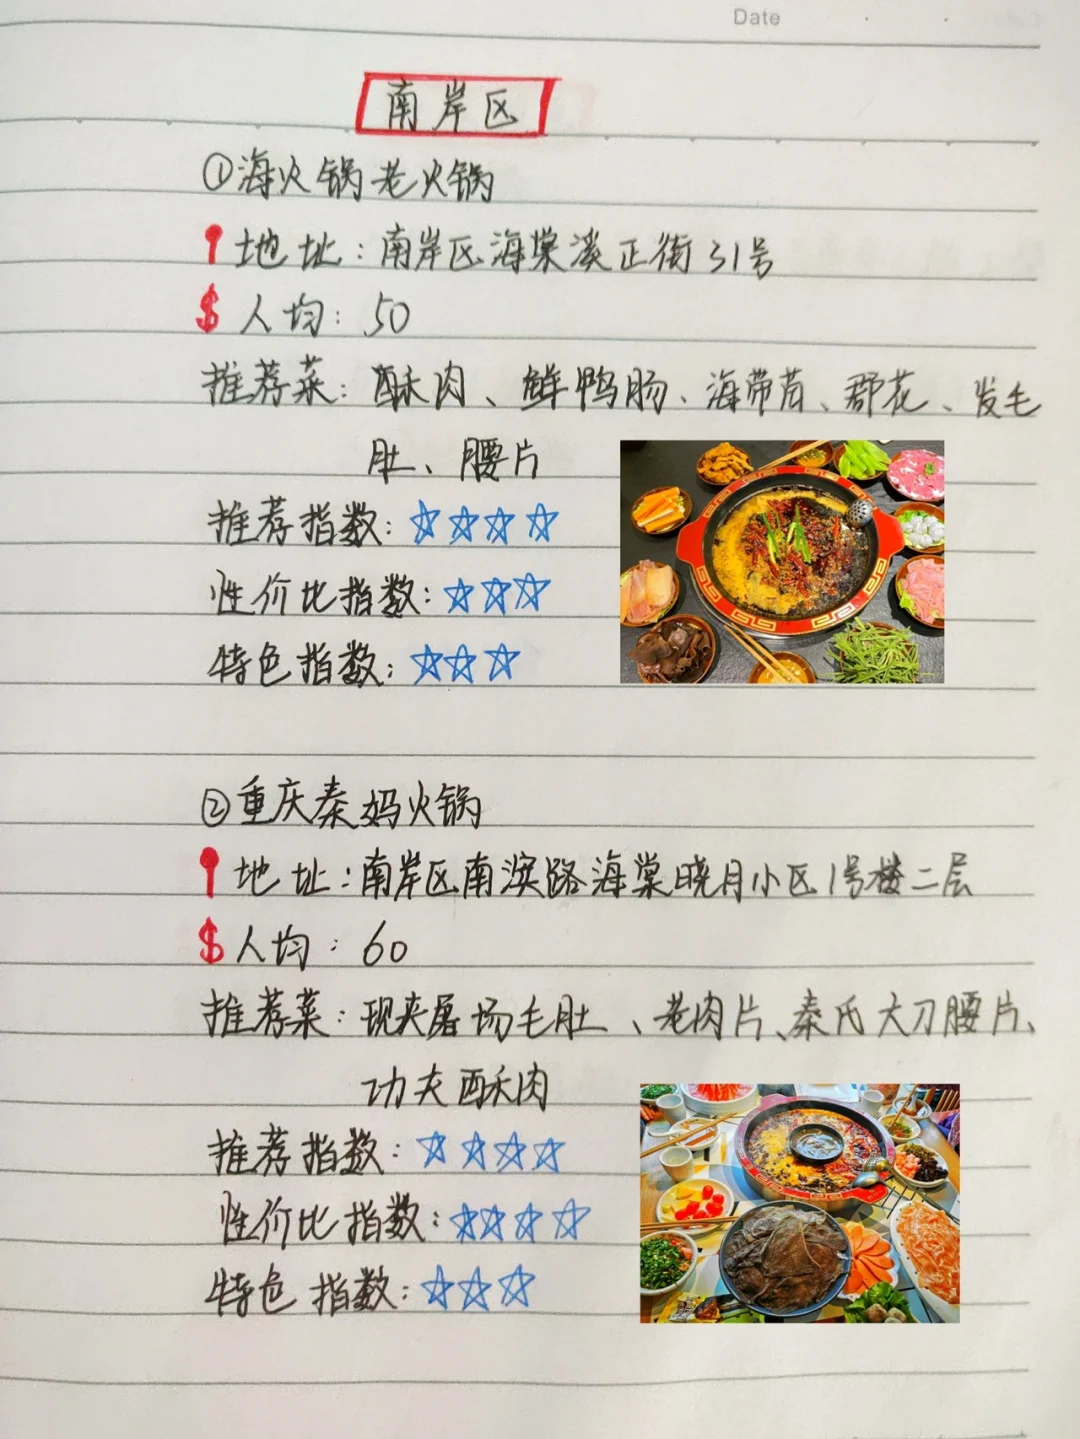 Date
南岸区
①海火锅老火锅
地址：南岸区海棠溪正街31号
$人均：50
推荐菜：酥肉、鲜鸭肠、海带苗、郡花、发毛
肚、腰片
推荐指数：☆☆☆☆
性价比指数：☆☆☆
特色指数：☆☆☆
②重庆秦妈火锅
地址：南岸区南滨路海棠晓月小区1号楼二层
$人均：60
推荐菜：现夹屠场毛肚、老肉片、秦氏大刀腰片、
功夫酥肉
推荐指数：☆☆☆☆
性价比指数：☆☆☆☆
特色指数：☆☆☆